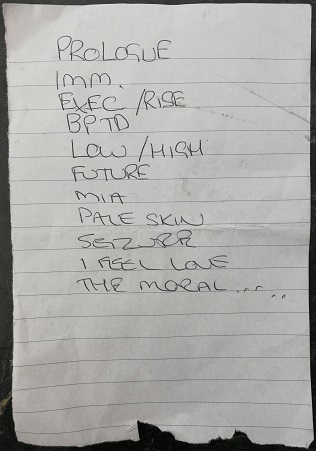 PROLOGUE
IMM.
EXEC /RISE
BPTD
LOW /HIGH
FUTURE
MIA
PALE SKIN
SEIZURE
I FEEL LOVE
THE MORAL....